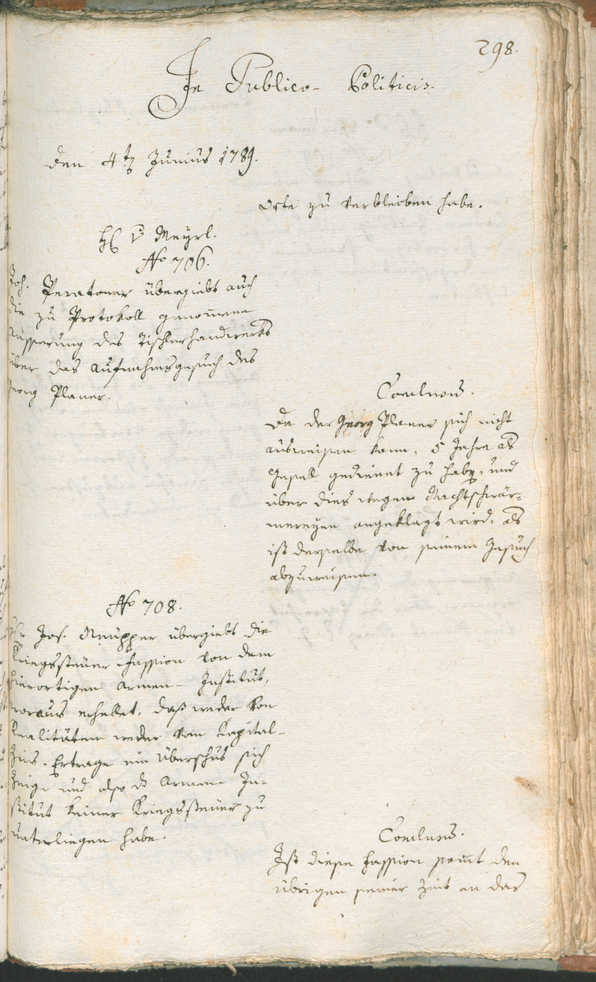 298.
In Publico-Politicis.
den 4t Junius 1789.
orte zu verbleiben habe.
H v Mayrl.
No 706.
Joh. Peratoner übergiebt auch
die zu Protokoll genomene
äusserung des Tischlerhandwerks
über das Aufnahmsgesuch des
Georg Planer.
Conclusum.
Da der Georg Planer sich nicht
ausweisen kann, 5 Jahre als
Gesell gedient zu haben, und
über dies wegen Nachtschwär-
mereyen angeklagt wird, als
ist derselbe von seinem Gesuch
abzuweisen.
No 708.
Jos. Knupper übergiebt die
Kriegssteuer-Fassion von dem
hierortigen Armen-Institut,
woraus erhellet, daß weder von
Realitäten weder vom Kapital-
zins-Ertrage ein Überschus sich
zeige und also das Armen-In-
stitut keiner Kriegssteuer zu
unterliegen habe.
Conclusum.
Ist diese Fassion samt den
übrigen seiner Zeit an das